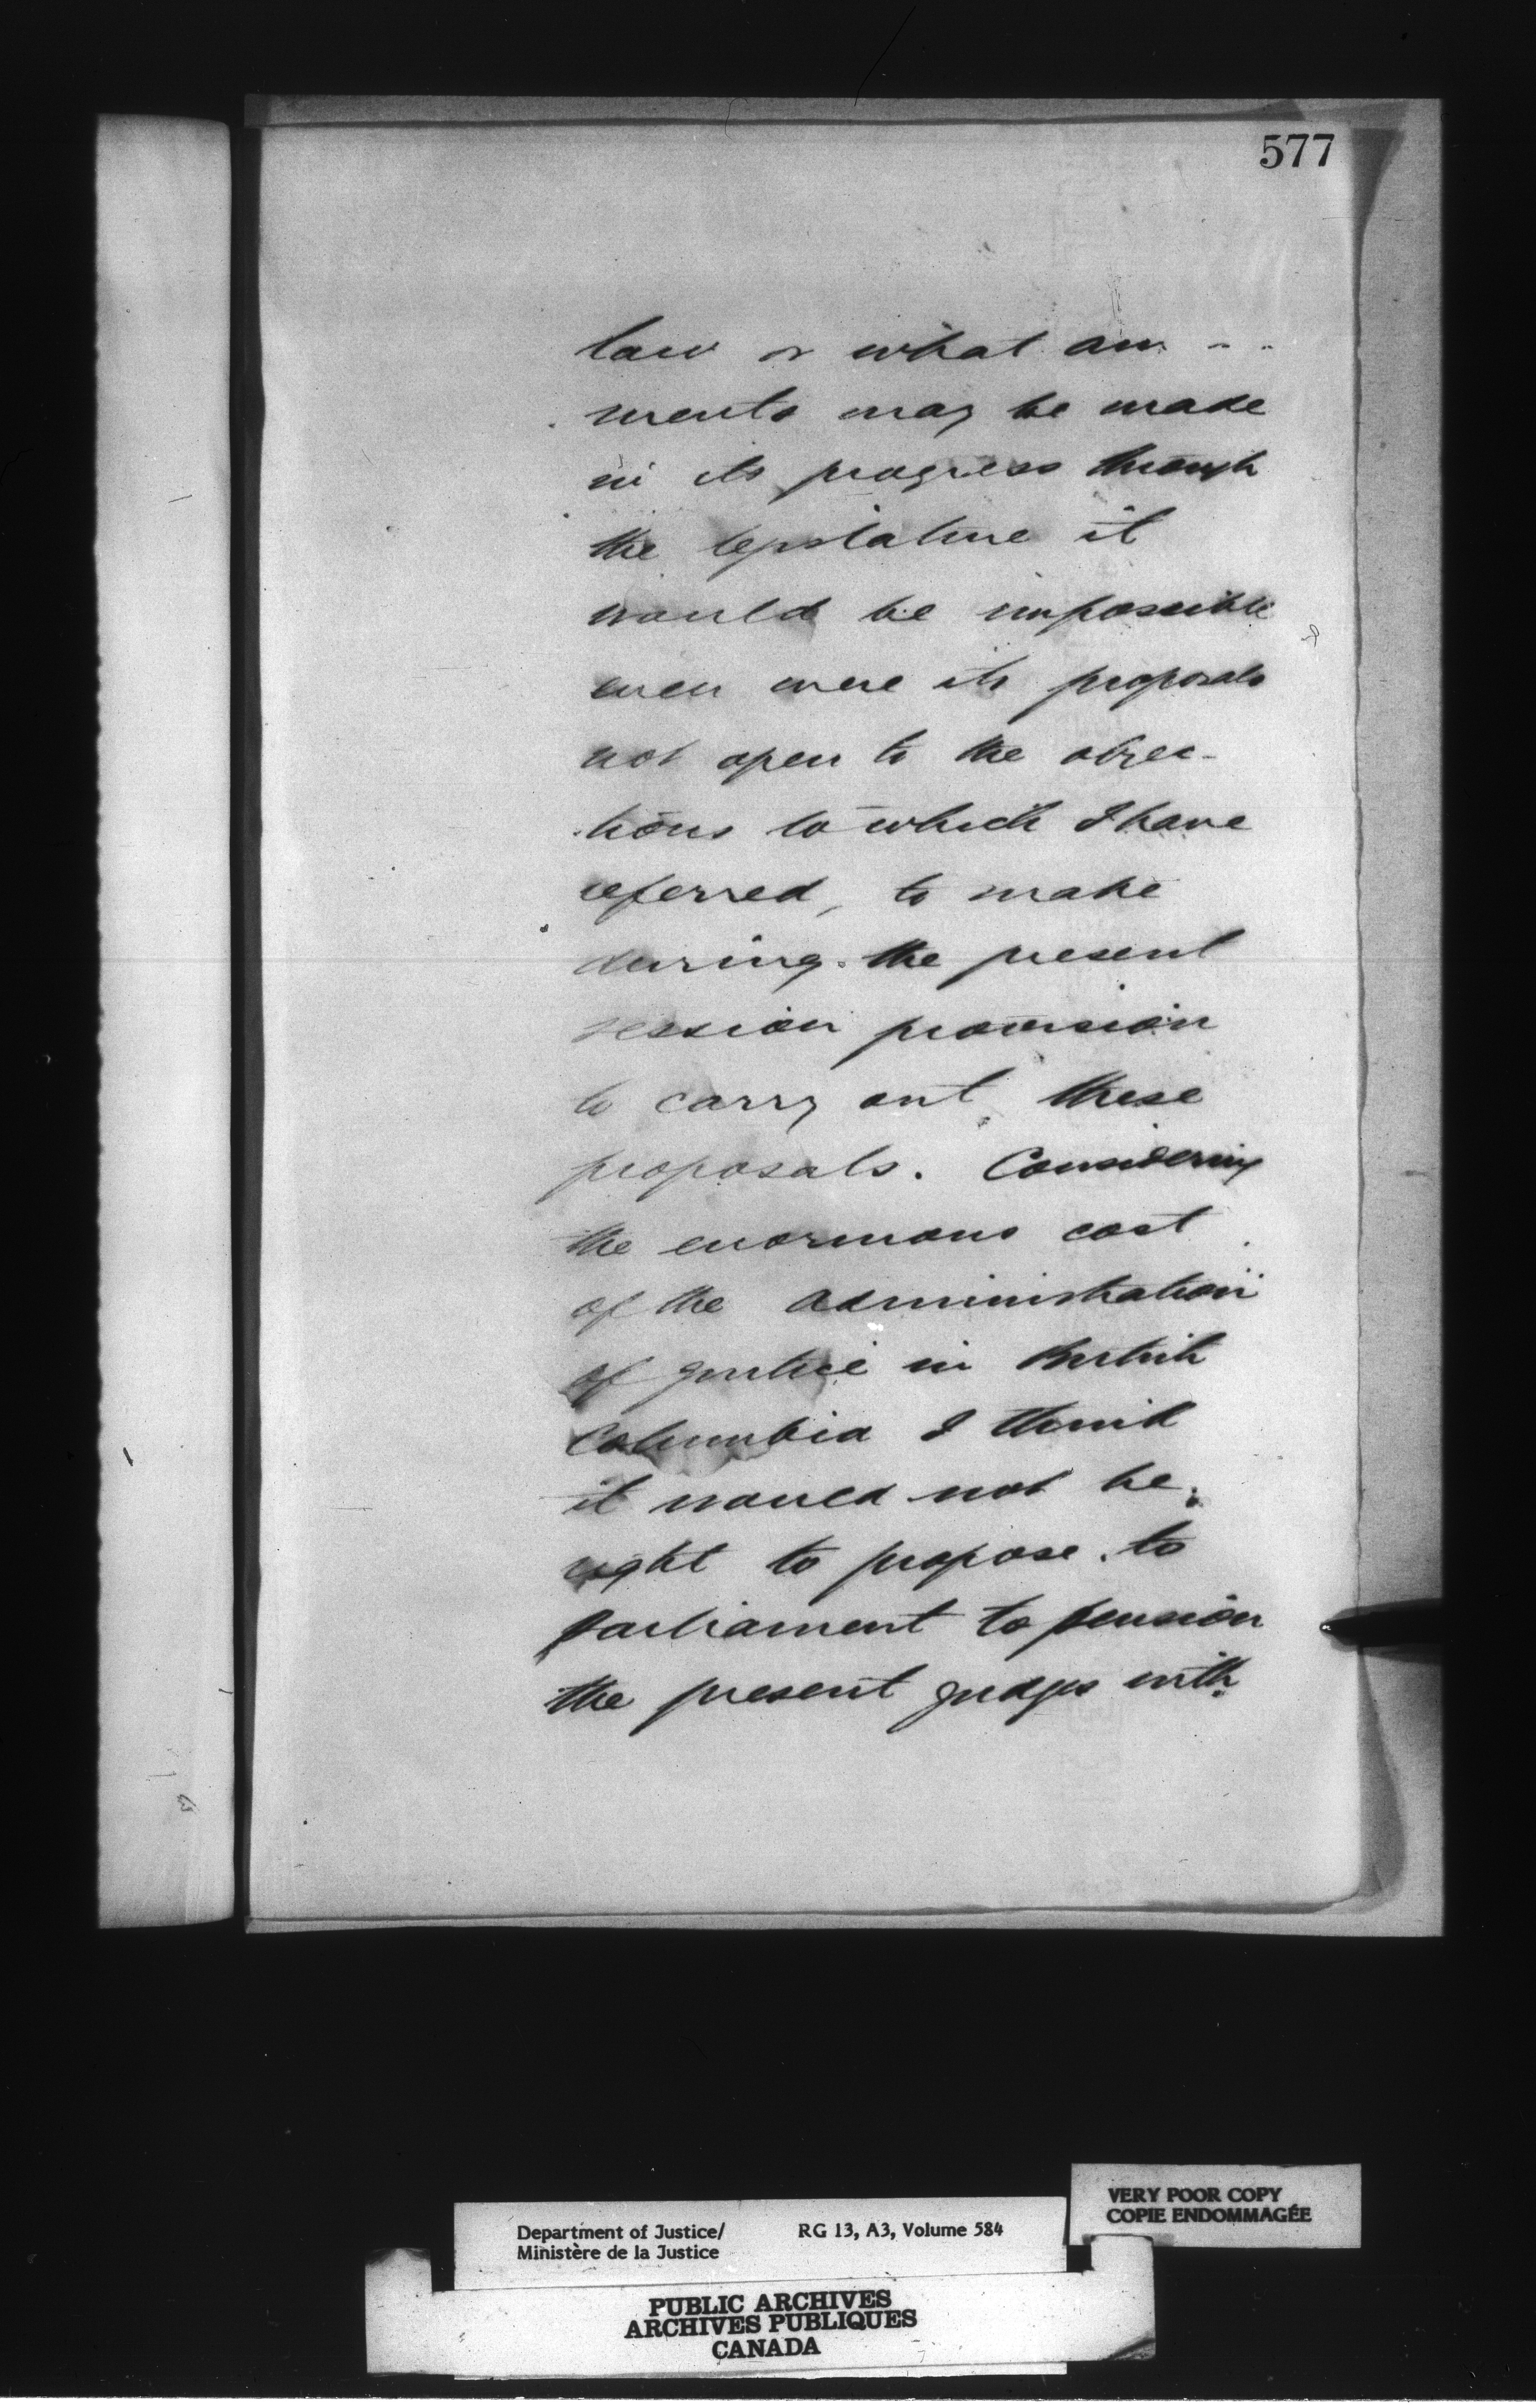 577
law or what am - -
ments may be made
in its progress through
the legislature it
would be impossible
even were its proposals
not open to the objec-
tions to which I have
referred, to make
during the present
session provision
to carry out these
proposals. Considering
the enormous cost
of the administration
of justice in British
Columbia I think
it would not be
right to propose to
parliament to pension
the present judges with
VERY POOR COPY
COPIE ENDOMMAGÉE
Department of Justice/ RG 13, A3, Volume 584
Ministère de la Justice
PUBLIC ARCHIVES
ARCHIVES PUBLIQUES
CANADA